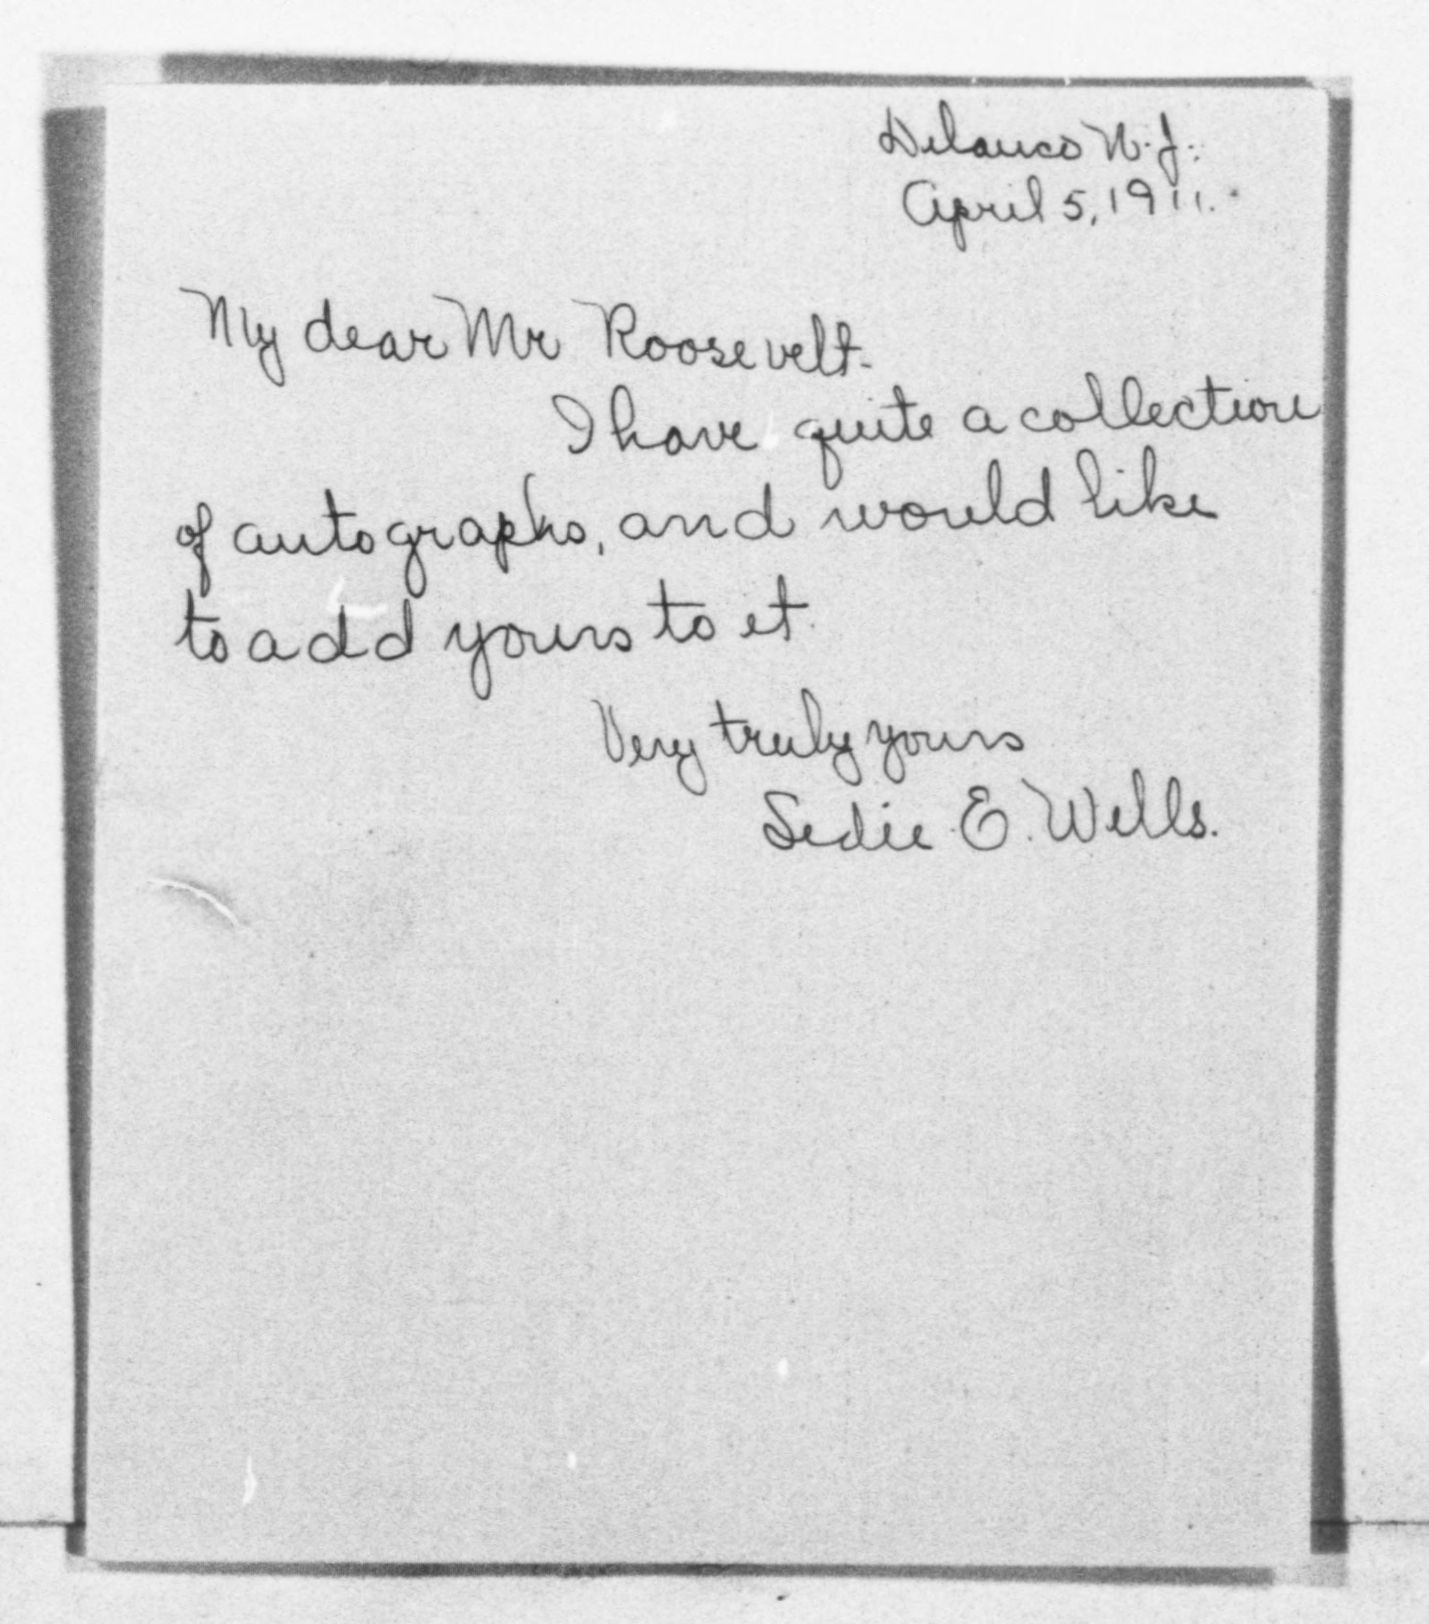 Delanco N.J.
April 5, 1911.
My dear Mr Roosevelt.
I have quite a collection
of autographs, and would like
to add yours to it.
Very truly yours
Sedie E. Wells.